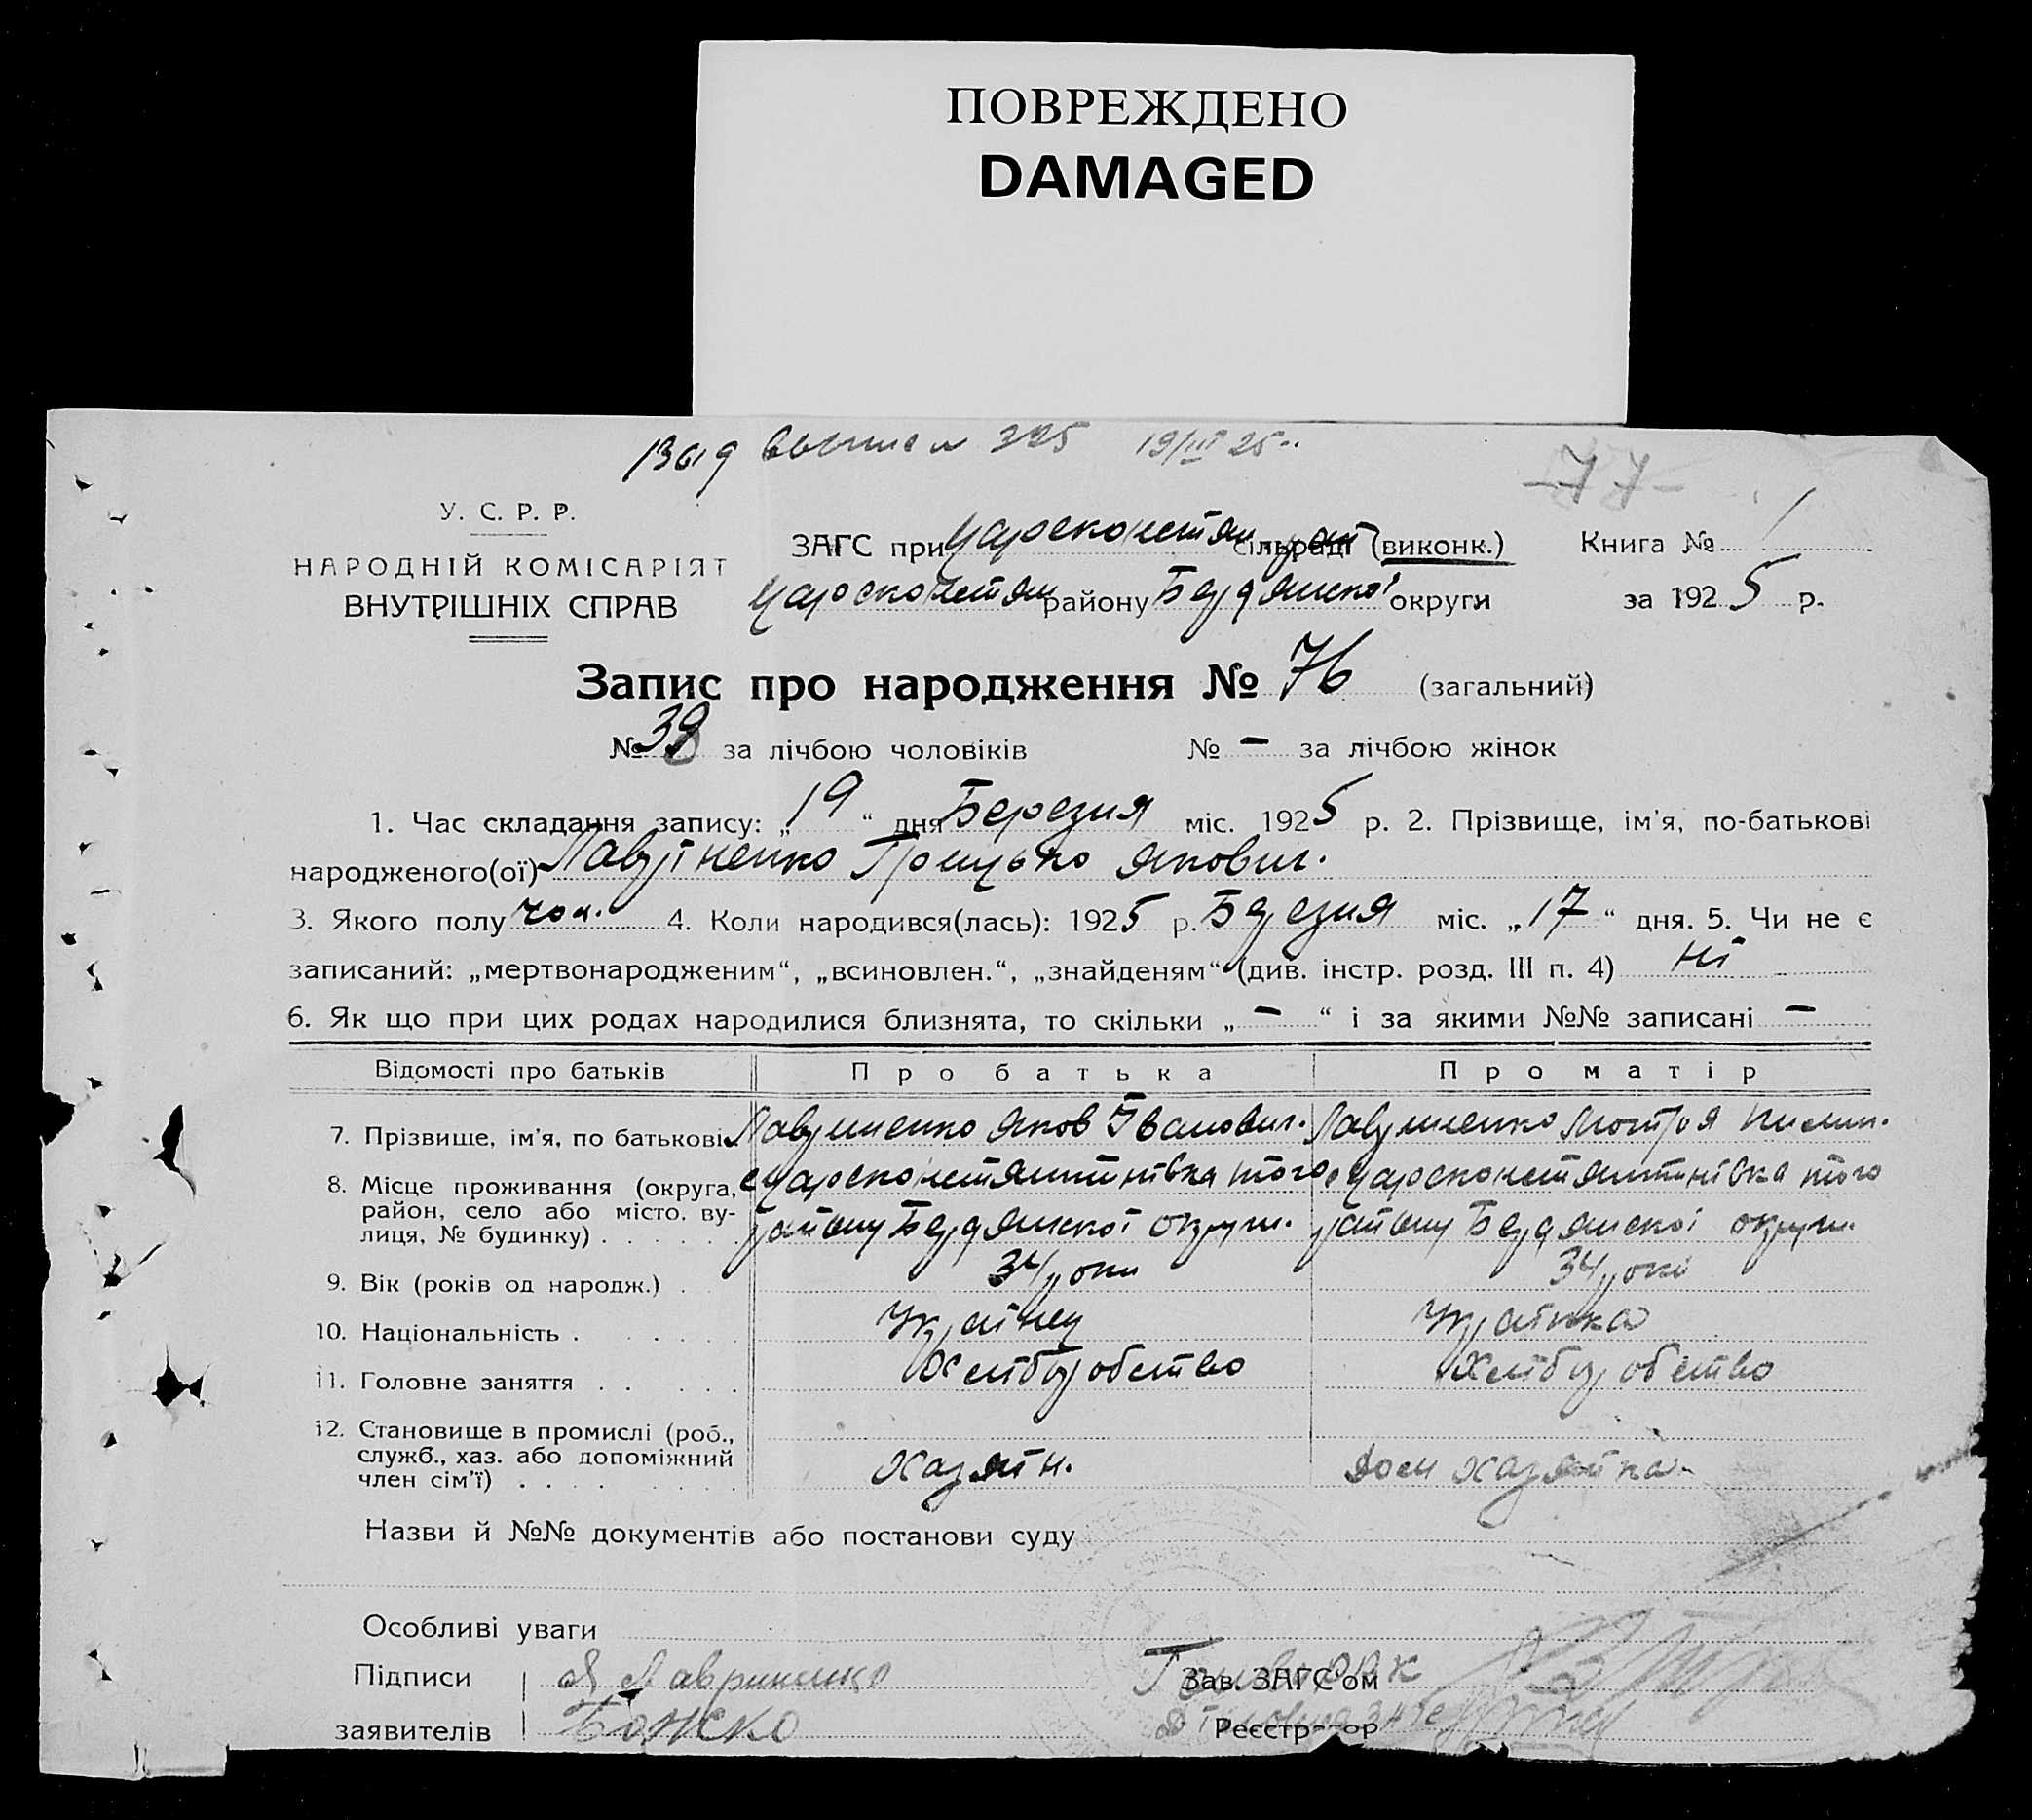 ПОВРЕЖДЕНО
DAMAGED
325 19/III 25
-77-
У. С. Р. Р.
НАРОДНІЙ КОМІСАРІЯТ
ВНУТРІШНІХ СПРАВ
ЗАГС при Царсконстян сільраді (виконк.) Книга № 1
Царсконстян району Бердянської округи за 1925 р.
Запис про народження № 76 (загальний)
№ 38 за лічбою чоловіків № — за лічбою жінок
1. Час складання запису: „19“ дня Березня міс. 1925 р. 2. Прізвище, ім'я, по-батькові
народженого(ої) Лавріненко Якович.
3. Якого полу чол. 4. Коли народився(лась): 1925 р. Березня міс. „17“ дня. 5. Чи не є
записаний: „мертвонародженим“, „всиновлен.“, „знайденям“ (див. інстр. розд. III п. 4) ні
6. Як що при цих родах народилися близнята, то скільки „—“ і за якими №№ записані —
Відомості про батьків Про батька Про матір
7. Прізвище, ім'я, по батькові Лавриненко Яков Іванович. Лавриненко Мотря
8. Місце проживання (округа, район, село або місто, вулиця, № будинку) с Царсконстянтинівка того с Царсконстянтинівка того
району Бердянської округи. району Бердянської округи.
9. Вік (років од народж.) 34 роки 34 роки
10. Національність Украінец Украінка
11. Головне заняття Хлібробство Хлібробство
12. Становище в промислі (роб., служб., хаз. або допоміжний член сім'ї) хазяїн. дом хазяйка.
Назви й №№ документів або постанови суду
Особливі уваги
Підписи Я Лавриненко Зав. ЗАГС'ом
заявителів Божко Реєстратор